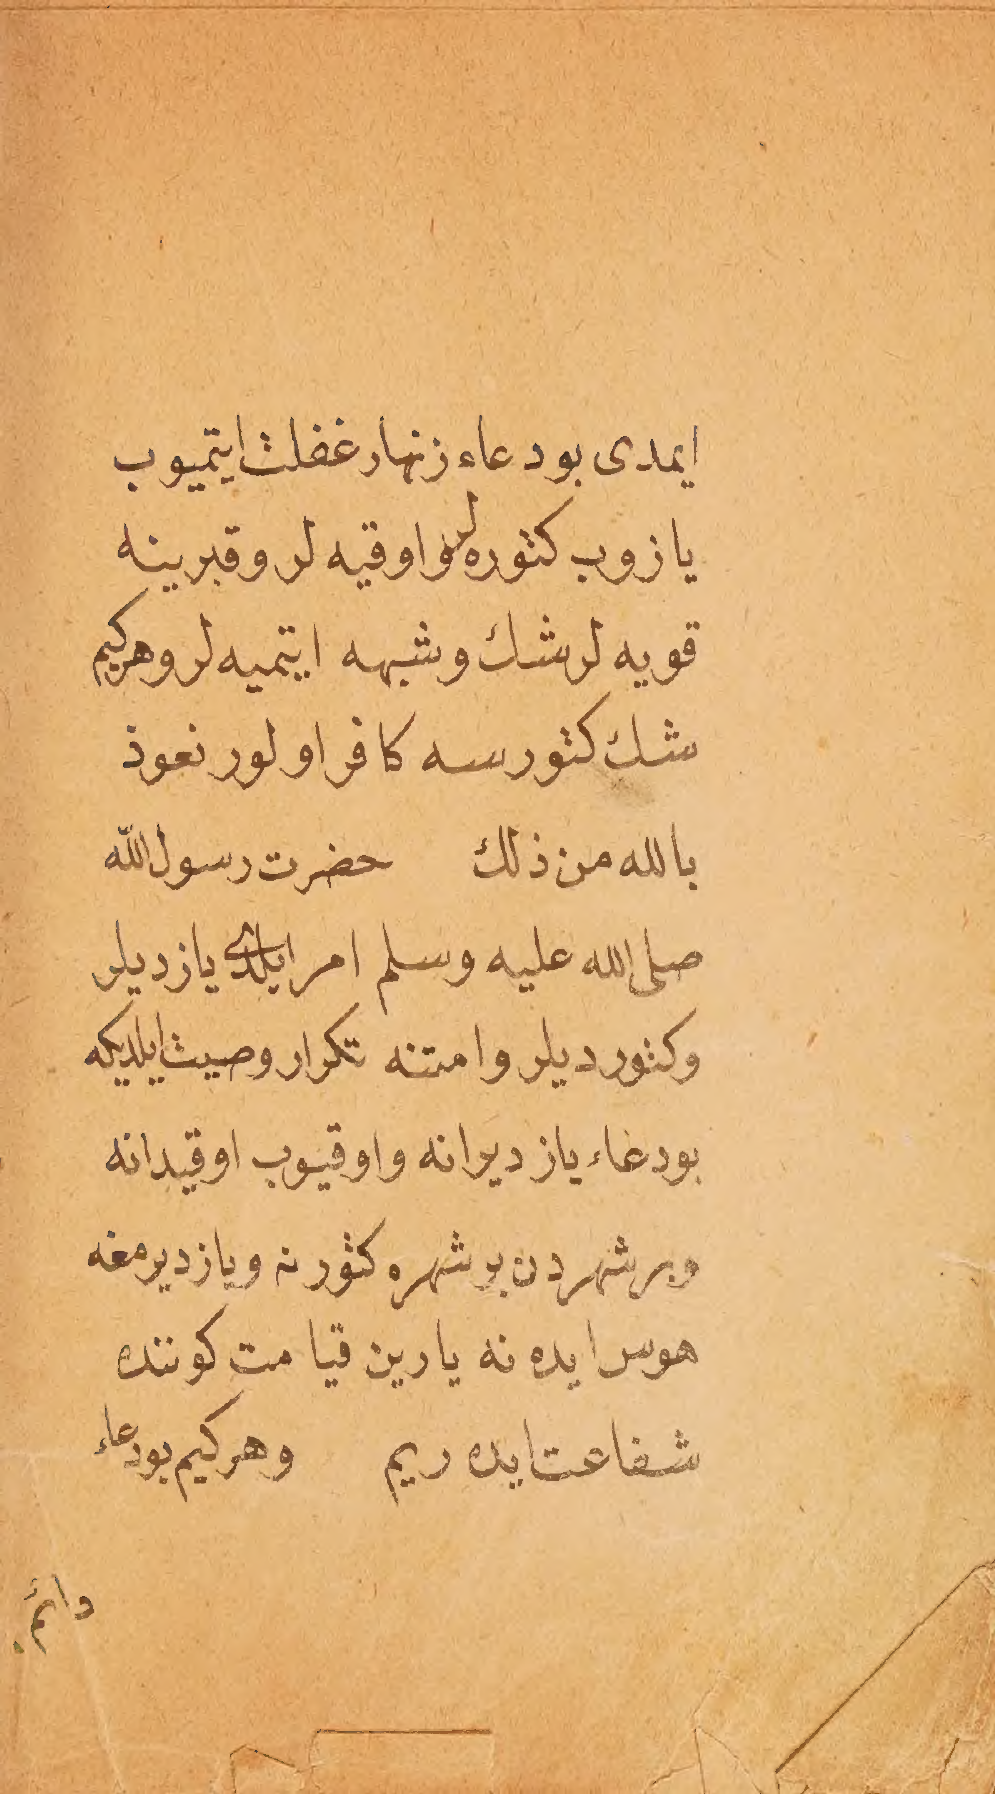 ايمدى بو دعاء زنهار غفلت ايتميوب
يازوب كتوره لر و اوقيه لر و قبرينه
قويه لر شك و شبهه ايتميه لر و هر كيم
شك كتورسه كافر اولور نعوذ
بالله من ذلك حضرت رسول الله
صلى الله عليه وسلم امر ايلدى يازديلر
وكتورديلر و امتنه تكرار وصيت ايلديكه
بو دعاء يازديرانه و اوقيوب اوقيدانه
وبر شهردن بر شهره كتورنه ويازديرمغه
هوس ايده نه يارين قيامت كوننده
شفاعت ايده ريم وهر كيم بو دعاء
دائم